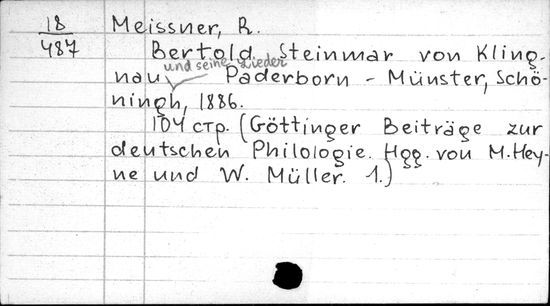 18
487
Meissner, R.
Bertold Steinmar von Kling-
und seine Lieder
nau Paderborn - Münster, Schö-
ningh, 1886.
104 стр. (Göttinger Beiträge zur
deutschen Philologie. Hgg. von M. Hey-
ne und W. Müller. 1.)